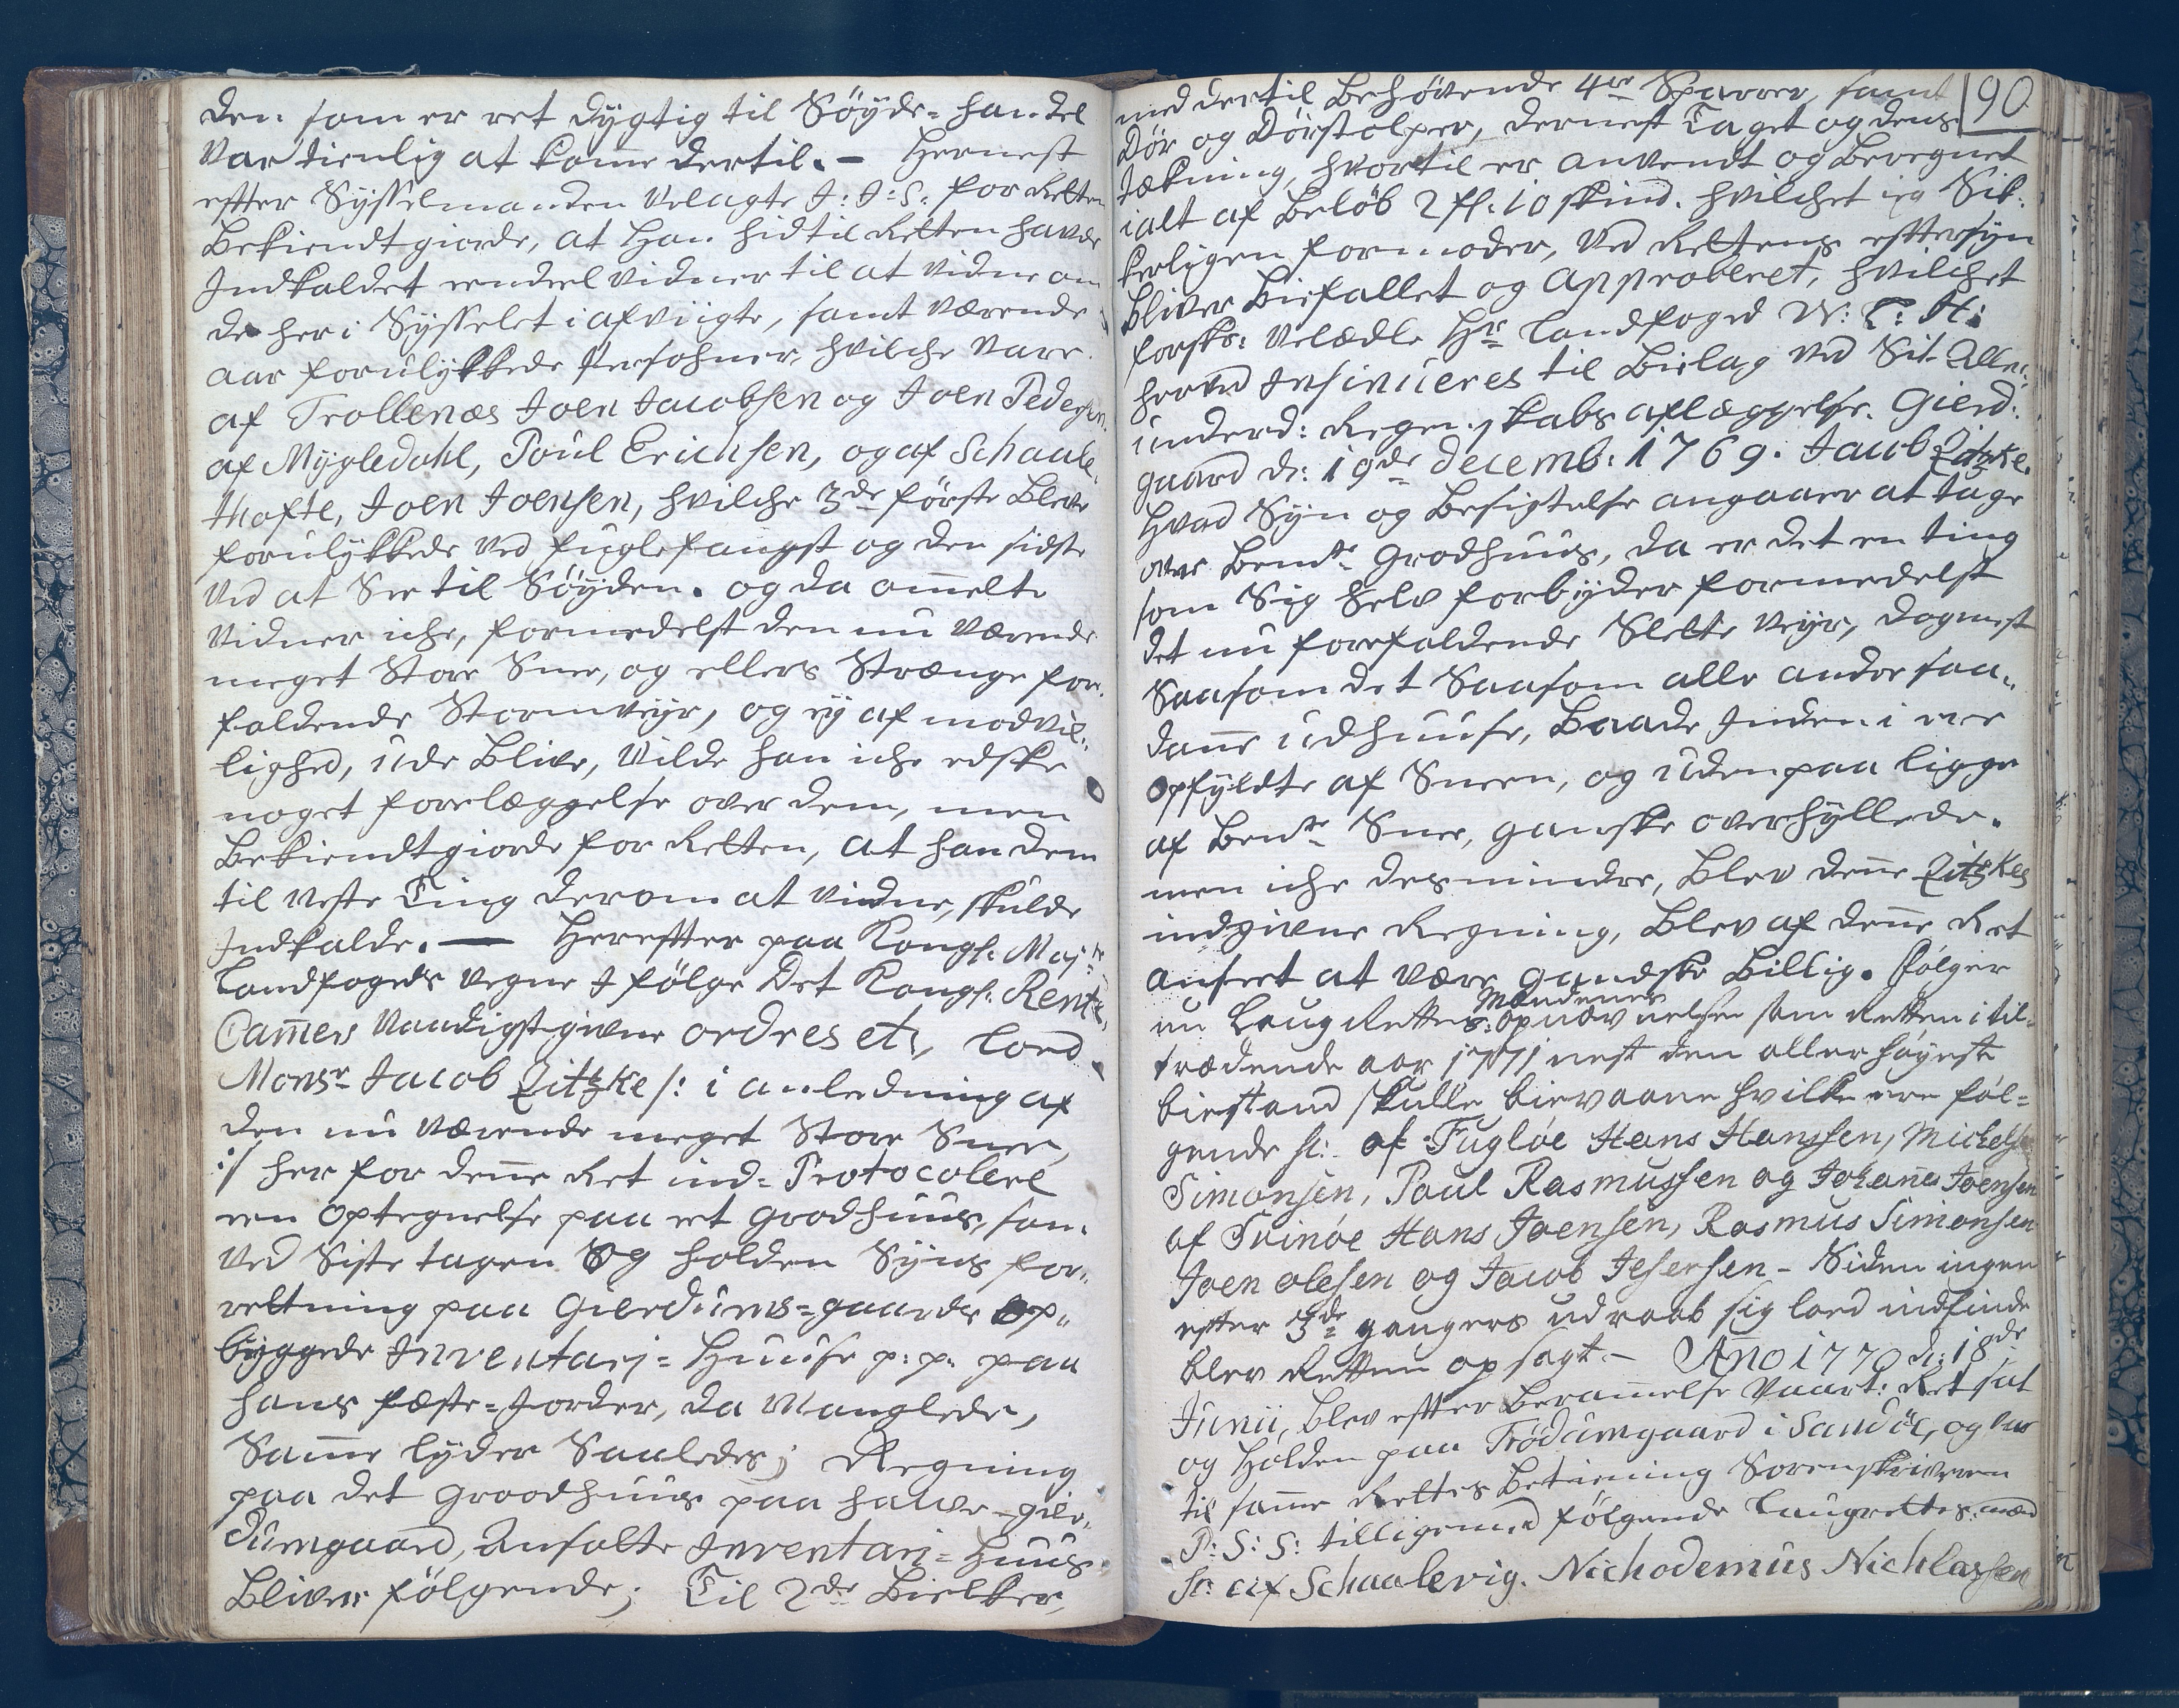 den som er ret dygtig til Söyde-handel
var tienlig at komme dertil. – Hernest
efter Sysselmanden Velagte J: J: S: for Retten
Bekiendtgiorde, at han hidtil Retten havde
Indkaldet eendeel vidner til at vidne om
de her i Sysselet i afvigte, samt værende
aar forulykkede Persohner, hvilche vare
af Trollenæs Joen Jacobsen og Joen Pedersen.
af Mygledahl, Poul Erichsen, og af Schaale,,
thofte, Joen Joensen, hvilche 3de første Bleve
forulykkede ved fuglefangst og den sidste
ved at See til Söyden. og da ommelte
vidner iche, formedelst den nu værende
meget Store Snee, og ellers Strænge for,,
faldende Stormveyr, og ey af modvil,,
lighed, ude Blive, Vilde han iche edske
noget forelæggelse over dem, men
Bekiendtgiorde for Retten, at han dem
til neste Ting derom at vidne, skulde
Indkalde. — Herefter paa Kongl. Mayts
Landfogeds vegne J fölge Det Kongl. Rente,
Cammers Naadigst givene ordres etc, loed
Monsr Jacob Zitzke /: i anledning af
den nu værende meget Store Snee,
:/ her for denne Ret ind-Protocolere
een optegnelse paa et Grodhuus, som
ved Siste tagen Og holden Syns for,,
retning paa Gierdums-gaards op,,
byggede Inventarj-Huuse p: p: paa
hans fæste-Jorder, da Manglede,
Samme lyder Saaledes; Regning
paa det Groodhuus paa halve-gier,,
dumgaard, Ansatte Inventarj-Huus
Bliver følgende; Til 2de Bielker,
90
med dertil Behövende 4re Sparrer, samt
Dör og Dörstolper, dernest Taget og dens
tækning, hvortil er anvendt og Beregnet
i alt af Belöb 2 fl: 10 skind. hvilchet jeg Sik:
kerligen formoder, ved Rettens eftersyn
bliver Biefallet og Approberet, hvilchet
forskr: Velædle Hr Landfoged W: C: H:
herved Insinueres til Bielag ved Sit Aller:
underd: Regenskabs aflæggelse. Gierd:
gaard d: 19de decemb: 1769. Jacob Zitzke.
Hvad Syn og Besigtelse angaaer at tage
over Bemte Grodhuus, da er det en ting
som Sig Selv forbyder formedelst
det nu forefaldende Slette veyr, dogmest
Saasom det Saasom alle andre saa,,
danne udhuuse, Baade Inden i ere
opfyldte af Sneen, og udenpaa ligge
af Bemte Snee, ganske overhyllede.
men iche desmindre, Blev denne Zitzkes
indgivne Regning, Blev af denne Ret
anseet at være gandske Billig. fölger
nu Laug Rettes Mændenes opnævnelse som Retten i til-
trædende aar 1771 nest den allerhöyeste
biestand skulle bievaane hvilke ere föl-
gende sc: af Fuglöe Hans Hanssen, Michel
Simonsen, Poul Rasmussen og Johannes Joensen
af Svinöe Hans Joensen, Rasmus Simonsen
Joen olesen og Jacob Jesersen – Siden ingen
efter 3de gangers udraab sig loed indfinde
blev Retten opsagt. – Anno 1770 d: 18de
Junii, blev efter Berammelse Vaart: Ret sat
og Holden paa Trödumgaard i Sandöe, og var
til samme Rettes Betiening Sorenskriveren
P: S: S: tilligemed følgende Laugrettes-mænd
sc: af Schaalevig. Nichodemus Nichlassen